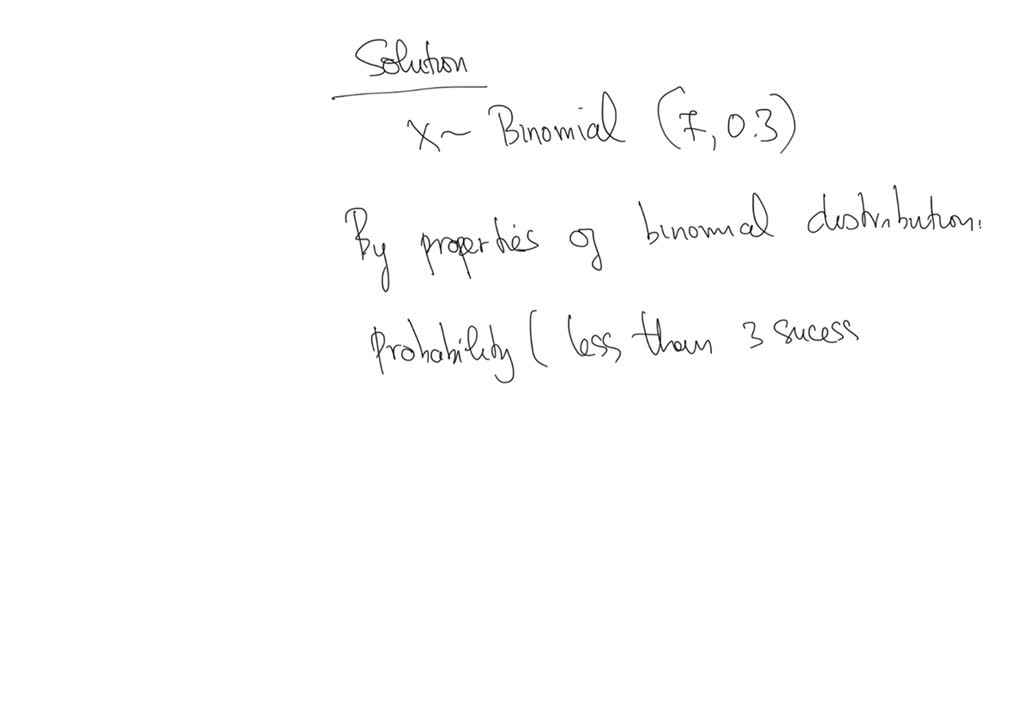 Solution
X ~ Binomial (7, 0.3)
By properties of binomial distribution.
Probability ( less than 3 sucess